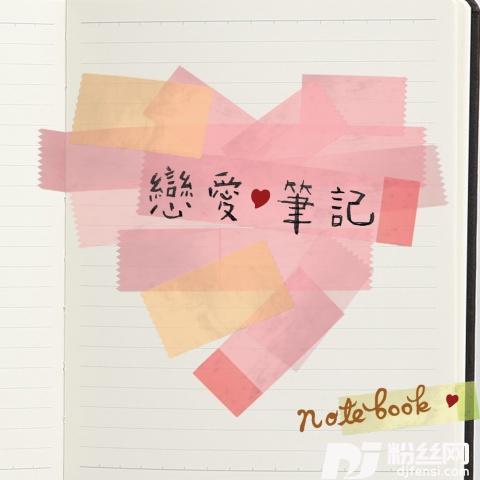 戀愛♥筆記
notebook ♥
DJ 粉丝网
djfensi.com